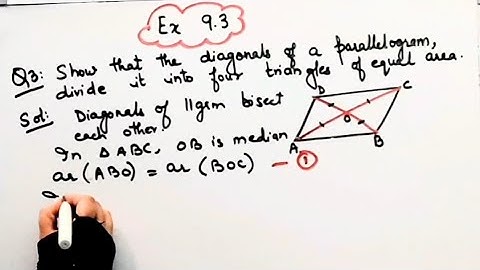 Ex 9.3
Q3: Show that the diagonals of a parallelogram,
divide it into four triangles of equal area.
Sol: Diagonals of ||gm bisect
each other.
In Δ ABC, OB is median
ar (ABO) = ar (BOC) — ①
D
C
O
A
B